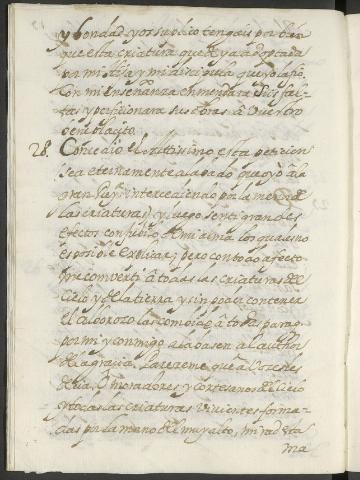 y bondad, y os suplico tengais por bien
que esta criatura quede ya adoptada
por mi Hija y mi discipula que yo la
con mi enseñanza enmendara sus fal-
tas y perficionara sus obras a vuestro
beneplacito.
28. Concedio el Altissimo esta peticion
sea eternamente alabado que oyo à la
gran Reyna intercediendo por la menor de
las criaturas) y luego senti grandes
efectos con jubilo de mi alma los quales no
es posible explicar; pero con todo afecto
me converti à todas las criaturas del
cielo y de la tierra y sin poder contener
el alborozo las combide à todas para q
por mi y conmigo alabasen al author
de la gracia. Pareceme que a voces les
decia. O moradores y cortesanos del cielo
y todas las criaturas vivientes forma-
das por la mano del muy alto, mirad esta
ma